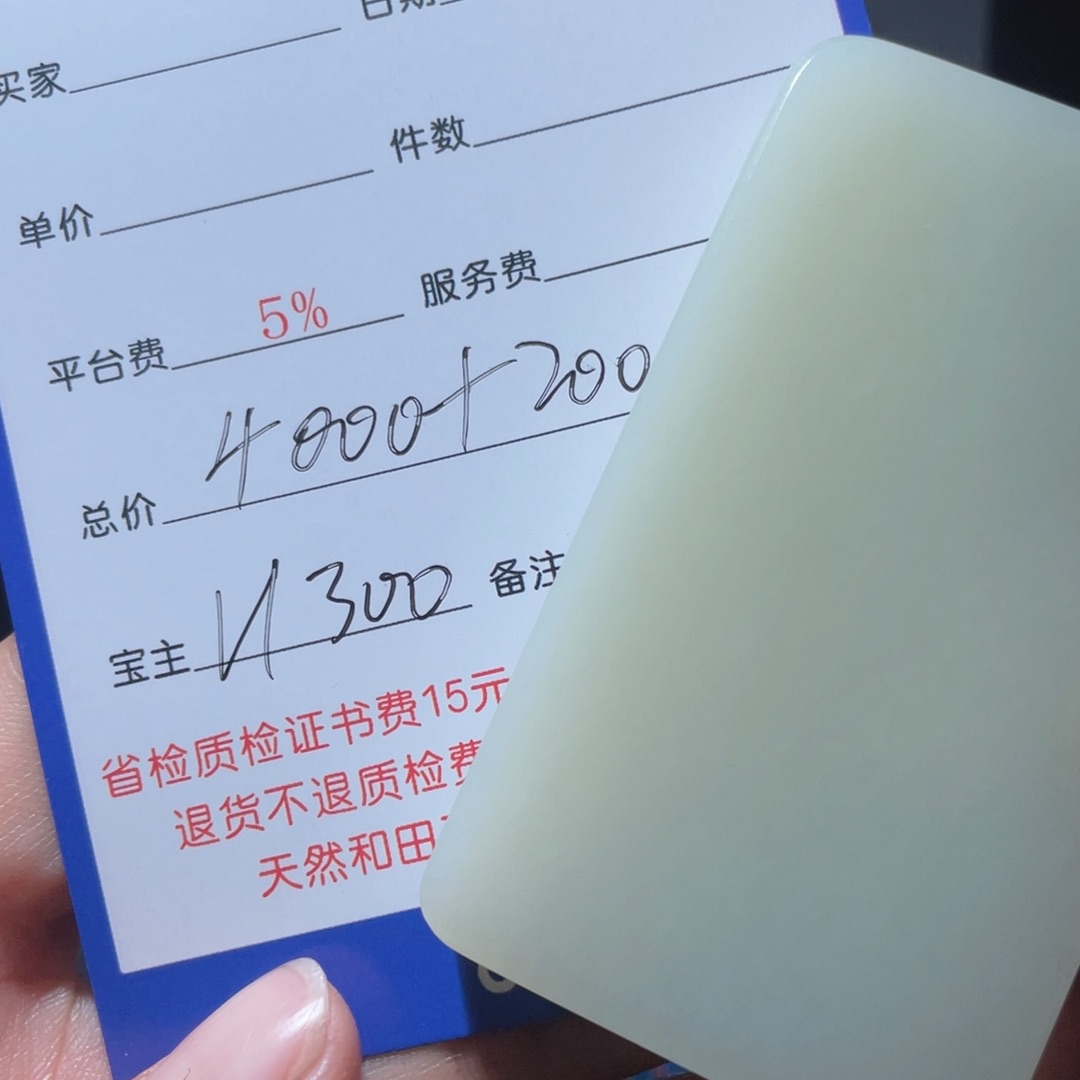 日期
买家
件数
单价
服务费
平台费 5%
总价 4000+200
宝主 300 备注
省检质检证书费15元
退货不退质检费
天然和田